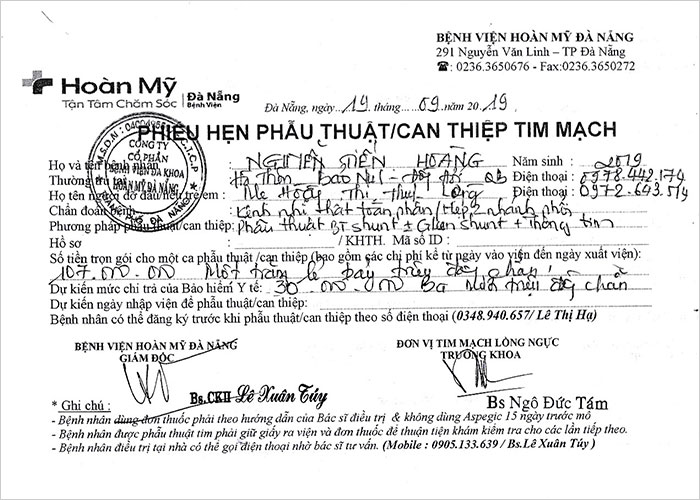 BỆNH VIỆN HOÀN MỸ ĐÀ NẴNG
291 Nguyễn Văn Linh – TP Đà Nẵng
☎: 0236.3650676 - Fax:0236.3650272
Hoàn Mỹ Đà Nẵng
Tận Tâm Chăm Sóc Bệnh Viện
Đà Nẵng, ngày 19 tháng 09 năm 2019
PHIẾU HẸN PHẪU THUẬT/CAN THIỆP TIM MẠCH
CÔNG TY
CỔ PHẦN
BỆNH VIỆN ĐA KHOA
HOÀN MỸ ĐÀ NẴNG
Họ và tên bệnh nhân : NGUYỄN TIẾN HOÀNG Năm sinh : 2019
Thường trú tại : Điện thoại : 0978.442.174
Họ tên người đỡ đầu nếu trẻ em : Mẹ Hoàng Thị Thuỳ Điện thoại : 0972.643.514
Chẩn đoán bệnh : Kênh nhĩ thất toàn phần/Hẹp 2 nhánh phổi
Phương pháp phẫu thuật/can thiệp: Phẫu thuật BT shunt ± Glenn shunt + Thông tim
Hồ sơ : / KHTH. Mã số ID :
Số tiền trọn gói cho một ca phẫu thuật /can thiệp (bao gồm các chi phí kể từ ngày vào viện đến ngày xuất viện):
107.000.000 Một trăm lẻ bảy triệu đồng chẵn
Dự kiến mức chi trả của Bảo hiểm Y tế: 30.000.000 Ba mươi triệu đồng chẵn
Dự kiến ngày nhập viện để phẫu thuật/can thiệp:
Bệnh nhân có thể đăng ký trước khi phẫu thuật/can thiệp theo số điện thoại (0348.940.657/ Lê Thị Hạ)
BỆNH VIỆN HOÀN MỸ ĐÀ NẴNG ĐƠN VỊ TIM MẠCH LỒNG NGỰC
GIÁM ĐỐC TRƯỞNG KHOA
Bs.CKII Lê Xuân Túy Bs Ngô Đức Tám
* Ghi chú :
- Bệnh nhân dùng đơn thuốc phải theo hướng dẫn của Bác sĩ điều trị & không dùng Aspegic 15 ngày trước mổ
- Bệnh nhân được phẫu thuật tim phải giữ giấy ra viện và đơn thuốc để thuận tiện khám kiểm tra cho các lần tiếp theo.
- Bệnh nhân điều trị tại nhà có thể gọi điện thoại nhờ bác sĩ tư vấn. (Mobile : 0905.133.639 / Bs.Lê Xuân Túy )